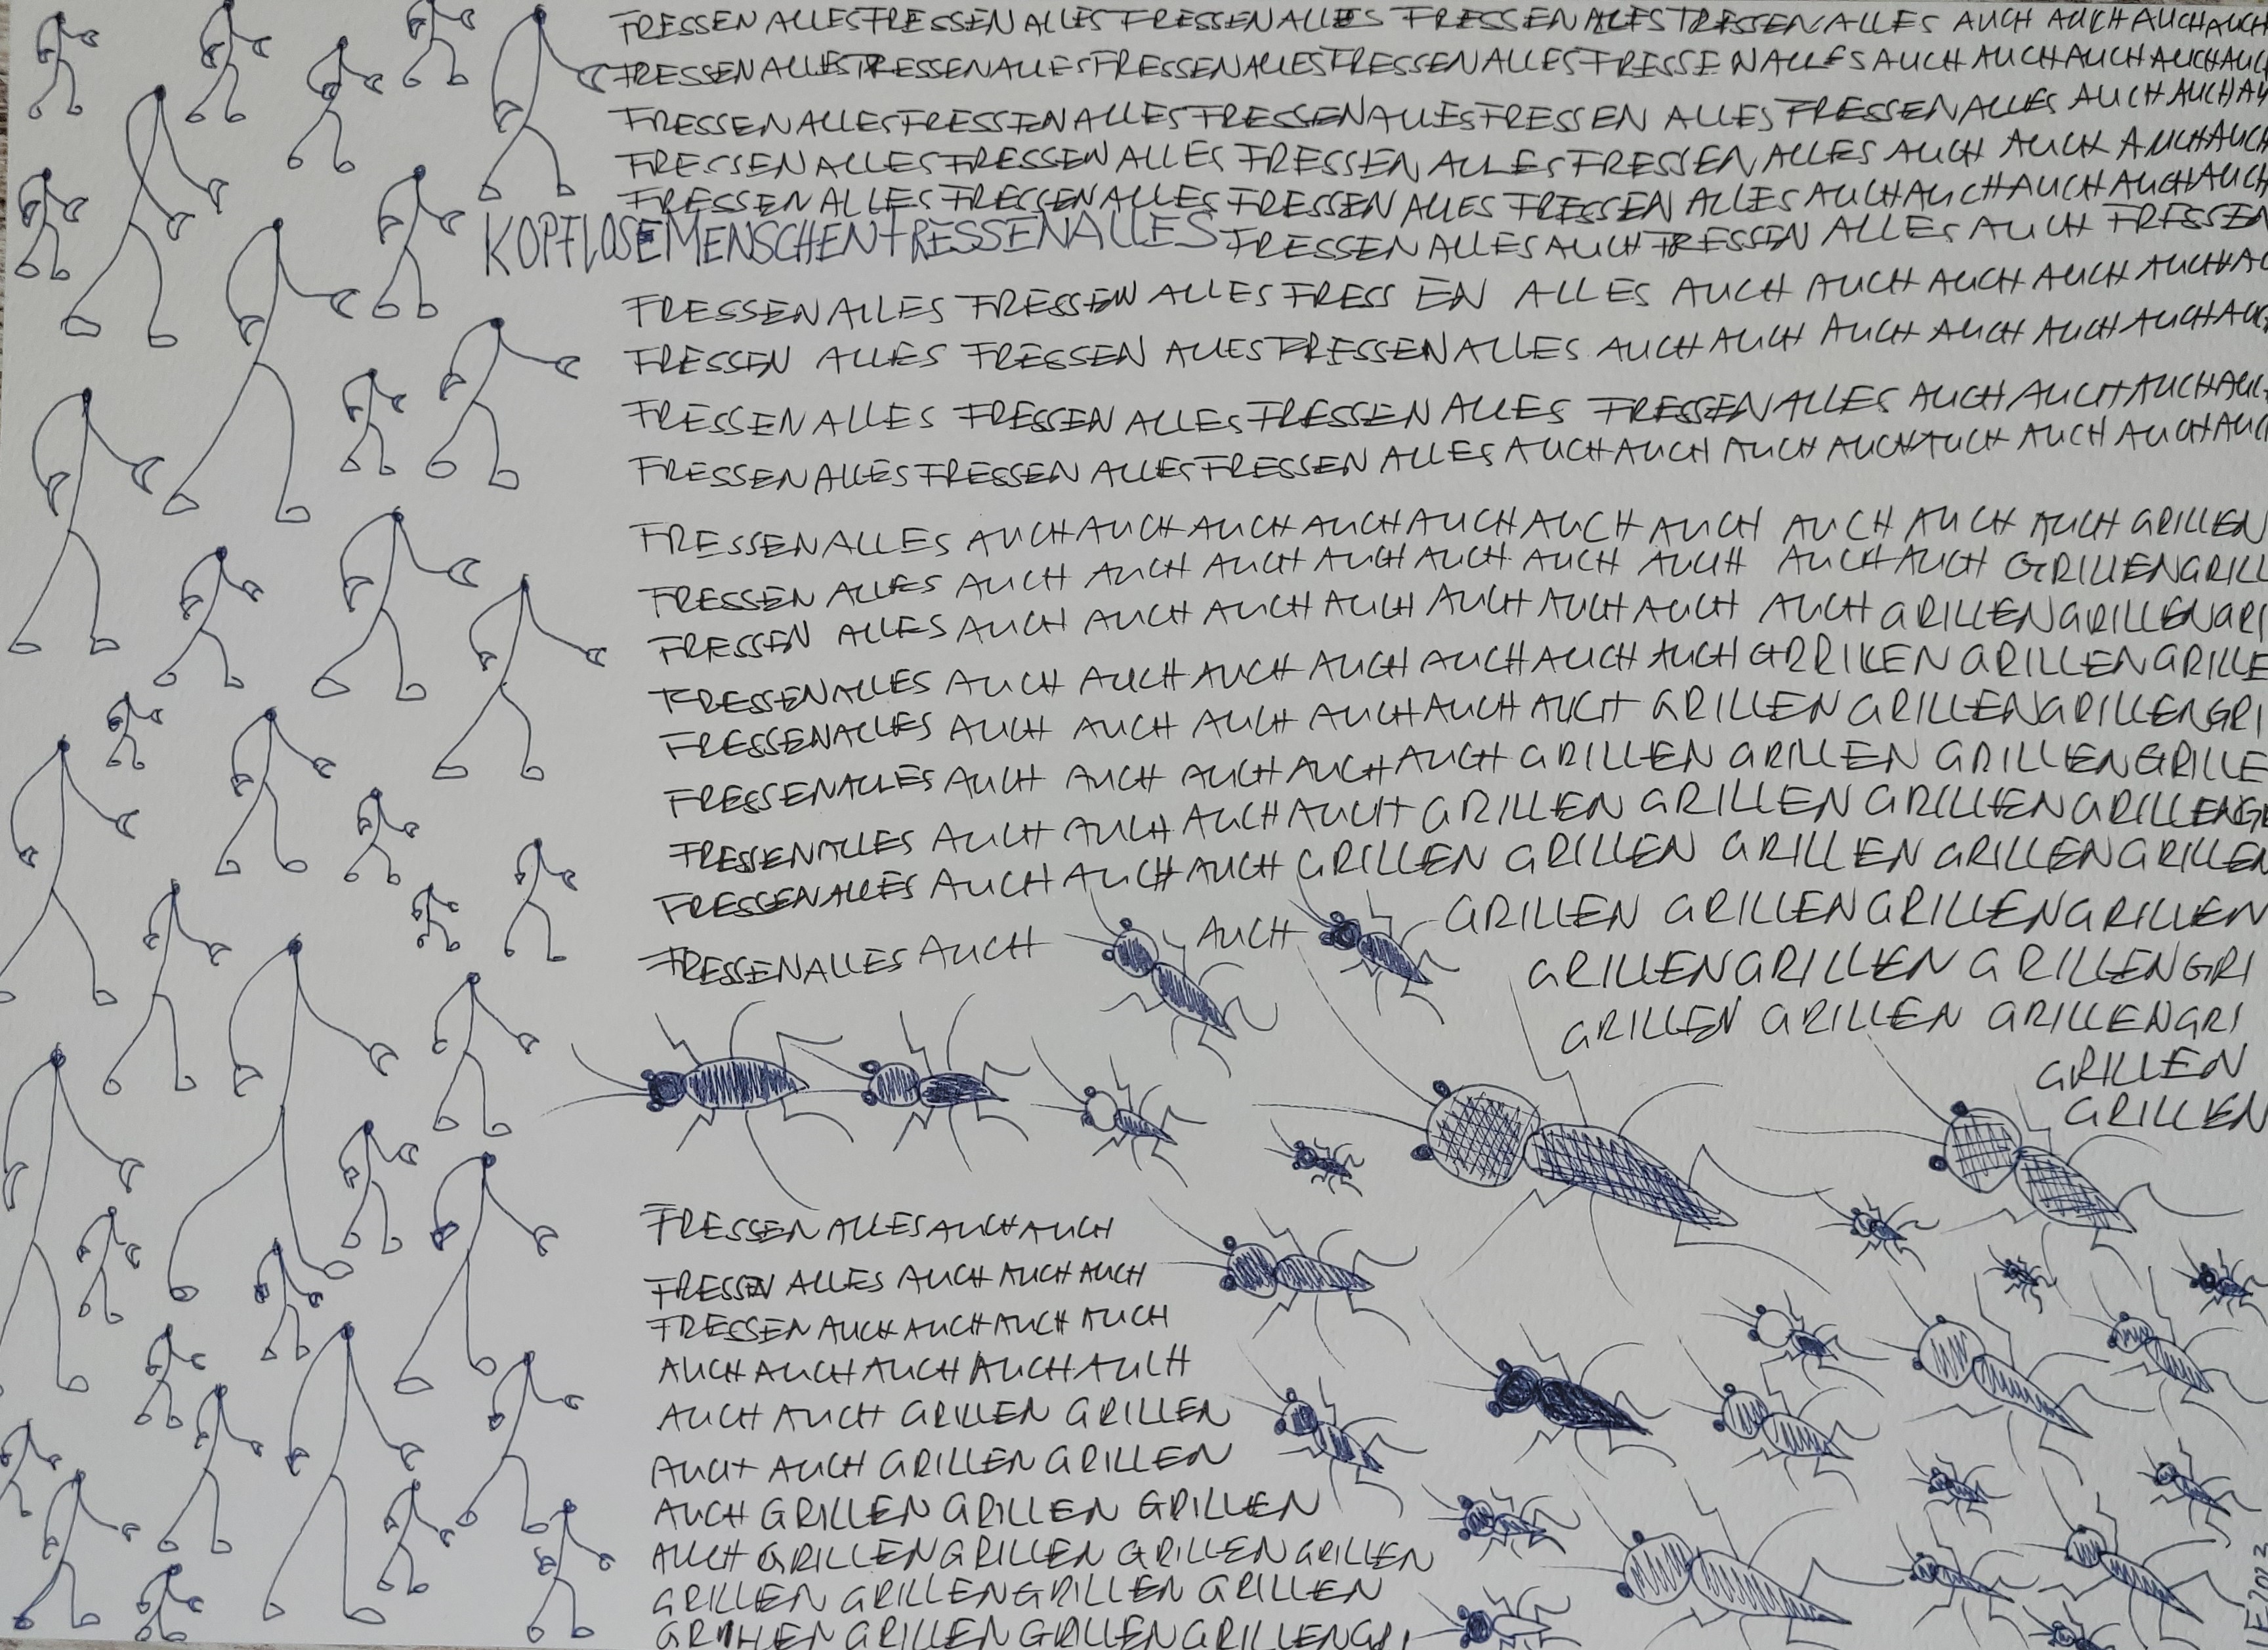 FRESSEN ALLESFRESSEN ALLES FRESSENALLES FRESSEN ALLESFRESSEN ALLES AUCH AUCH AUCHAUCH
FRESSENALLESFRESSENALLESFRESSENALLESFRESSENALLESFRESSENALLESAUCH AUCHAUCH AUCHAUCH
FRESSENALLESFRESSENALLESFRESSENALLESFRESSEN ALLESFRESSENALLES AUCHAUCHAU
FRESSENALLESFRESSENALLES FRESSENALLESFRESSENALLES AUCH AUCH AUCHAUCH
FRESSENALLESFRESSENALLESFRESSENALLES FRESSEN ALLESAUCHAUCHAUCHAUCHAUCH
KOPFLOSEMENSCHENFRESSENALLES FRESSENALLESAUCHFRESSEN ALLESAUCH FRESSEN
FRESSENALLES FRESSEN ALLESFRESS EN ALLES AUCH AUCH AUCH AUCH AUCHAU
FRESSEN ALLES FRESSEN ALLESFRESSENALLES AUCHAUCH AUCH AUCH AUCH AUCHAUC
FRESSENALLES FRESSEN ALLESFRESSENALLES FRESSENALLES AUCHAUCHAUCHAUC
FRESSENALLESFRESSEN ALLESFRESSEN ALLES AUCHAUCH AUCH AUCHAUCH AUCH AUCHAUC
FRESSENALLES AUCHAUCHAUCH AUCHAUCHAUCHAUCH AUCH AUCH AUCH GRILLEN
FRESSEN ALLES AUCH AUCH AUCH AUCH AUCH AUCH AUCH AUCHAUCH GRILLENGRILL
FRESSEN ALLES AUCH AUCH AUCH AUCH AUCH AUCHAUCH AUCH GRILLENGRILLENGRI
FRESSENALLES AUCH AUCH AUCH AUCH AUCHAUCH AUCH GRRILLEN GRILLENGRILLE
FRESSENALLES AUCH AUCH AUCH AUCHAUCH AUCH GRILLEN GRILLENGRILLENGRI
FRESSENALLES AUCH AUCH AUCHAUCH AUCH GRILLEN GRILLEN GRILLENGRILLE
FRESSENALLES AUCH AUCH AUCHAUCH GRILLEN GRILLEN GRILLENGRILLENGR
FRESSENALLES AUCH AUCH AUCH GRILLEN GRILLEN GRILLEN GRILLENGRILLEN
FRESSENALLES AUCH AUCH GRILLEN GRILLENGRILLENGRILLEN
GRILLENGRILLEN GRILLENGRI
GRILLEN GRILLEN GRILLENGRI
GRILLEN
GRILLEN
FRESSEN ALLESAUCHAUCH
FRESSEN ALLES AUCH AUCH AUCH
FRESSEN AUCH AUCH AUCH AUCH
AUCH AUCH AUCH AUCH AUCH
AUCH AUCH GRILLEN GRILLEN
AUCH AUCH GRILLEN GRILLEN
AUCH GRILLEN GRILLEN GRILLEN
AUCH GRILLENGRILLEN GRILLENGRILLEN
GRILLEN GRILLENGRILLEN GRILLEN
GRILLEN GRILLEN GRILLENGRILLENGRI